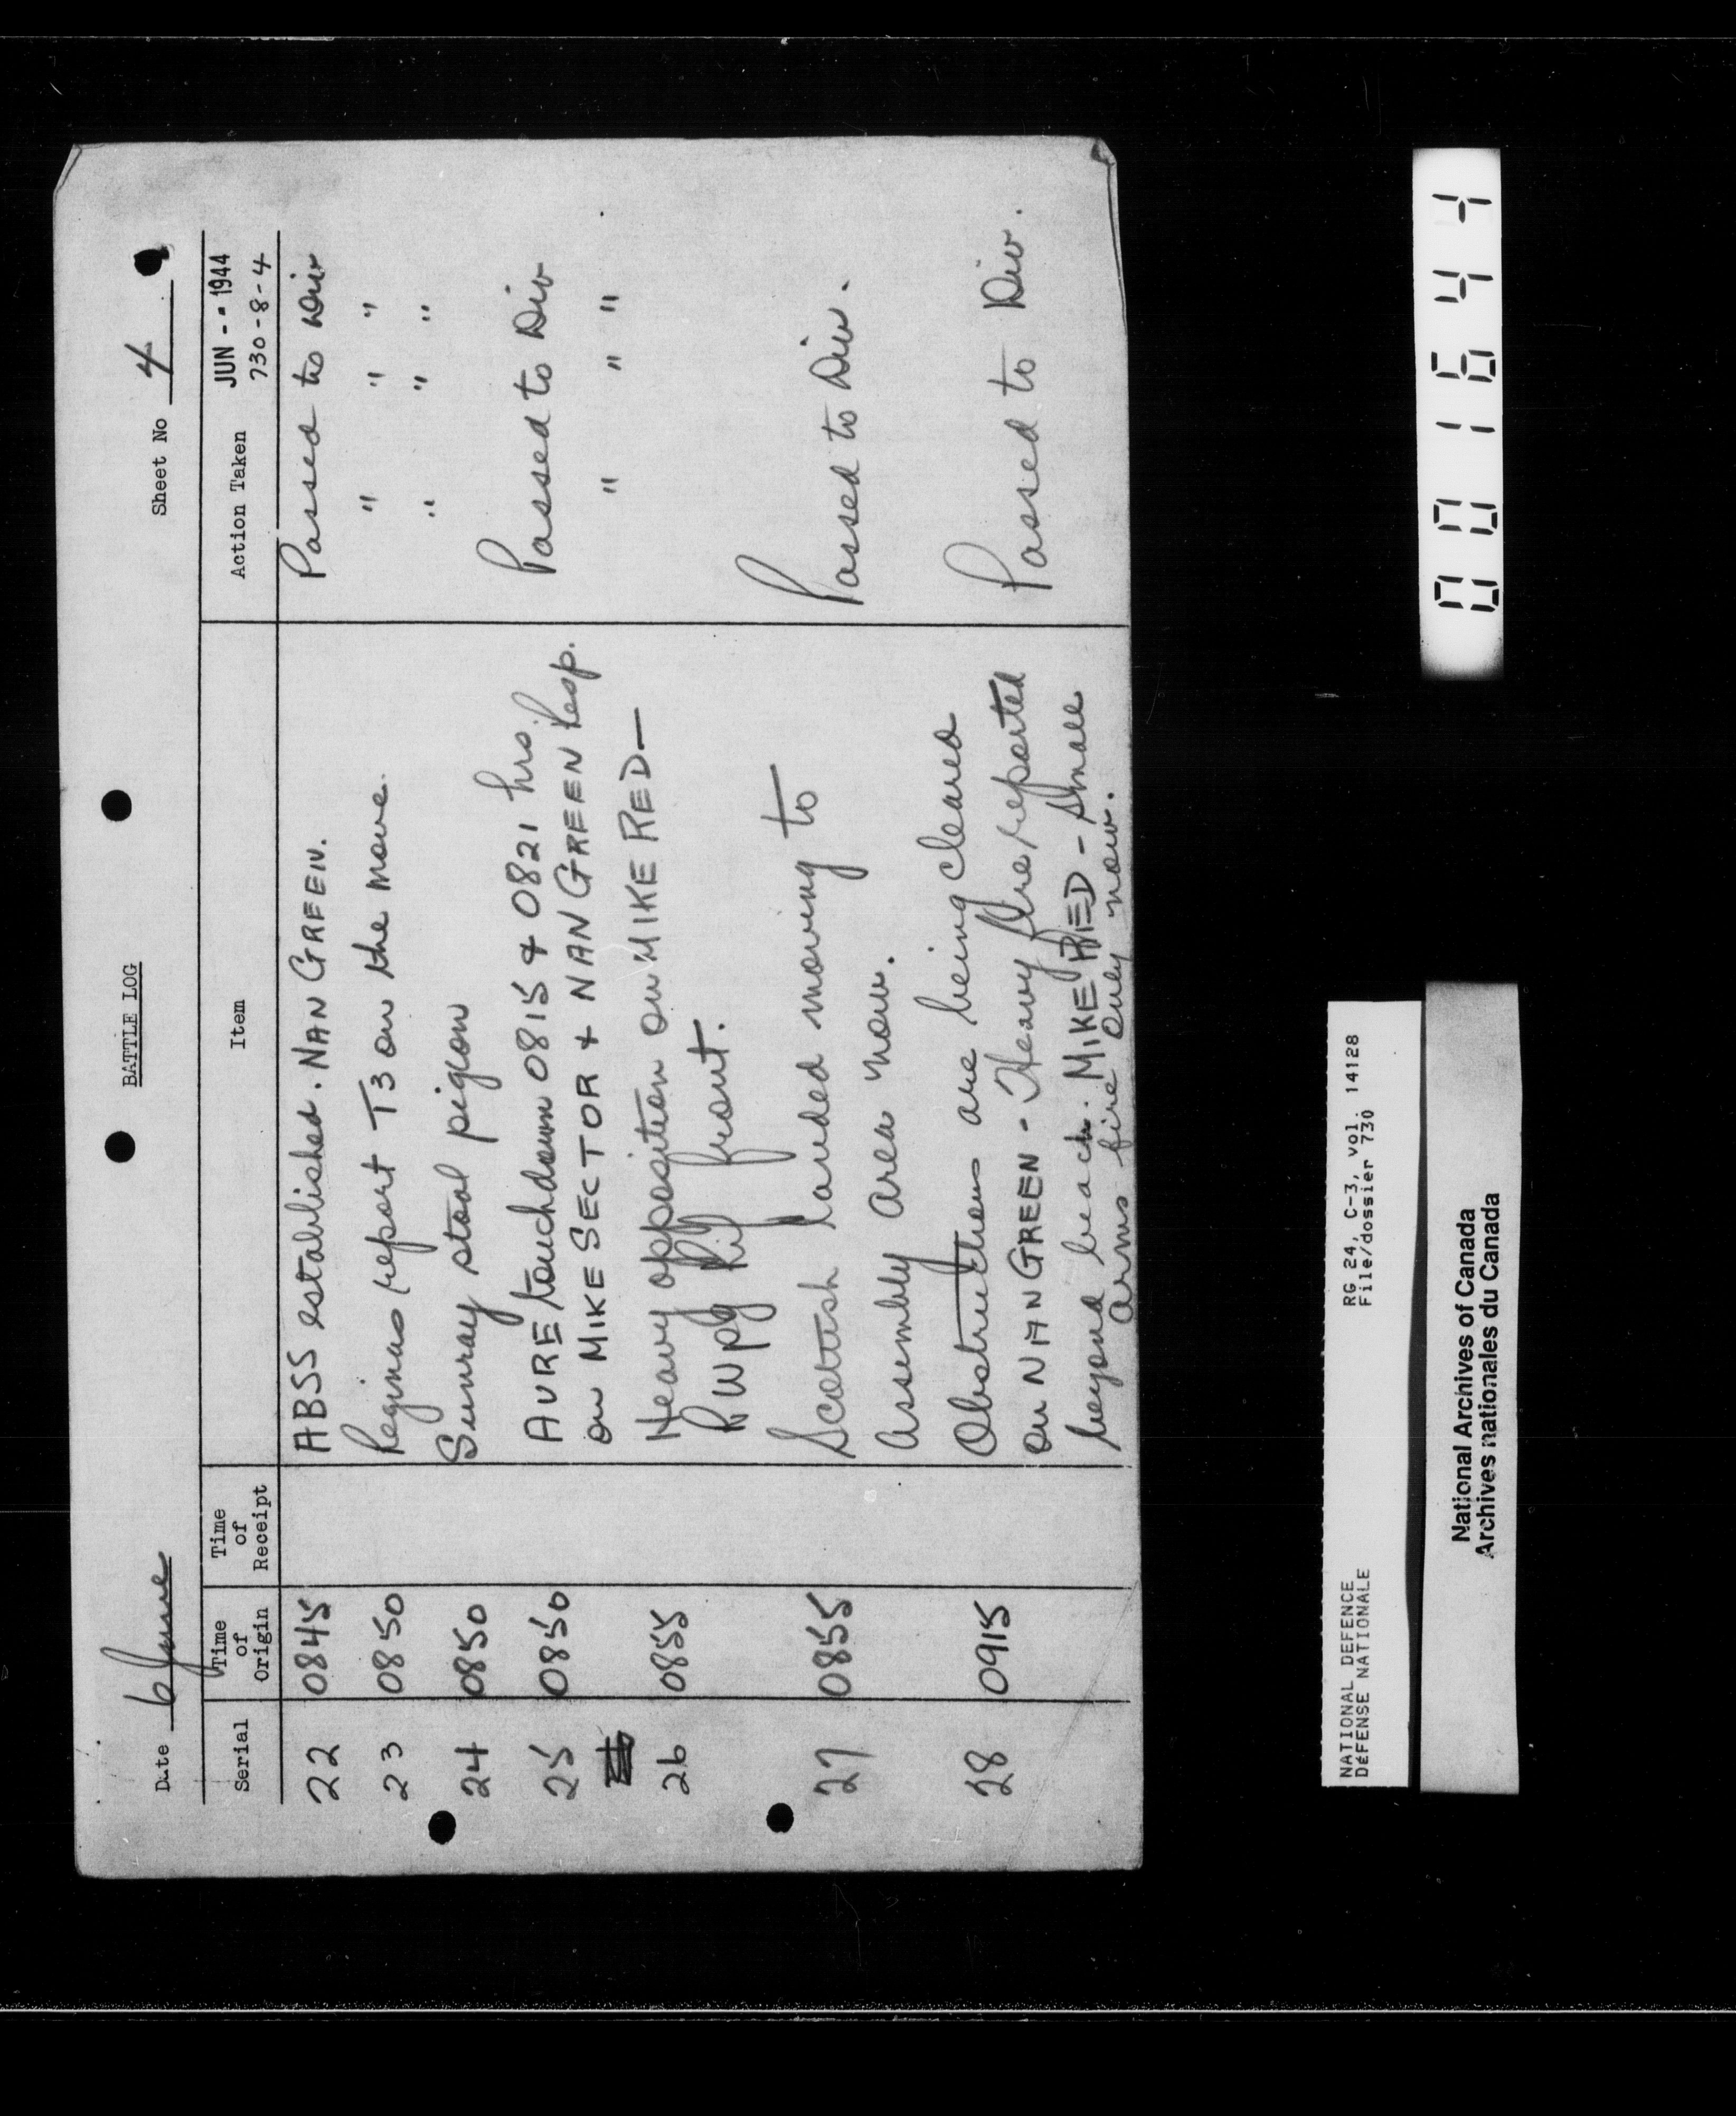 BATTLE LOG
Date 6 June
Sheet No 4
Serial Time of Origin Time of Receipt Item Action Taken JUN - - 1944
730-8-4
22 0845 ABSS established. NAN GREEN. Passed to Div
23 0850 Reginas report T3 on the move. " " "
24 0850 Sunray stool pigeon " " "
25 0850 AVRE touchdown 0815 & 0821 hrs Passed to Div
on MIKE SECTOR & NAN GREEN resp.
26 0855 Heavy opposition on MIKE RED— " " "
R Wpg Rif front.
27 0855 Scottish landed moving to Passed to Div.
assembly area now.
28 0915 Obstructions are being cleared Passed to Div.
on NAN GREEN - Heavy fire reported
beyond beach. MIKE RED - small
arms fire only now.
NATIONAL DEFENCE RG 24, C-3, vol. 14128
DÉFENSE NATIONALE File/dossier 730
National Archives of Canada
Archives nationales du Canada
001644